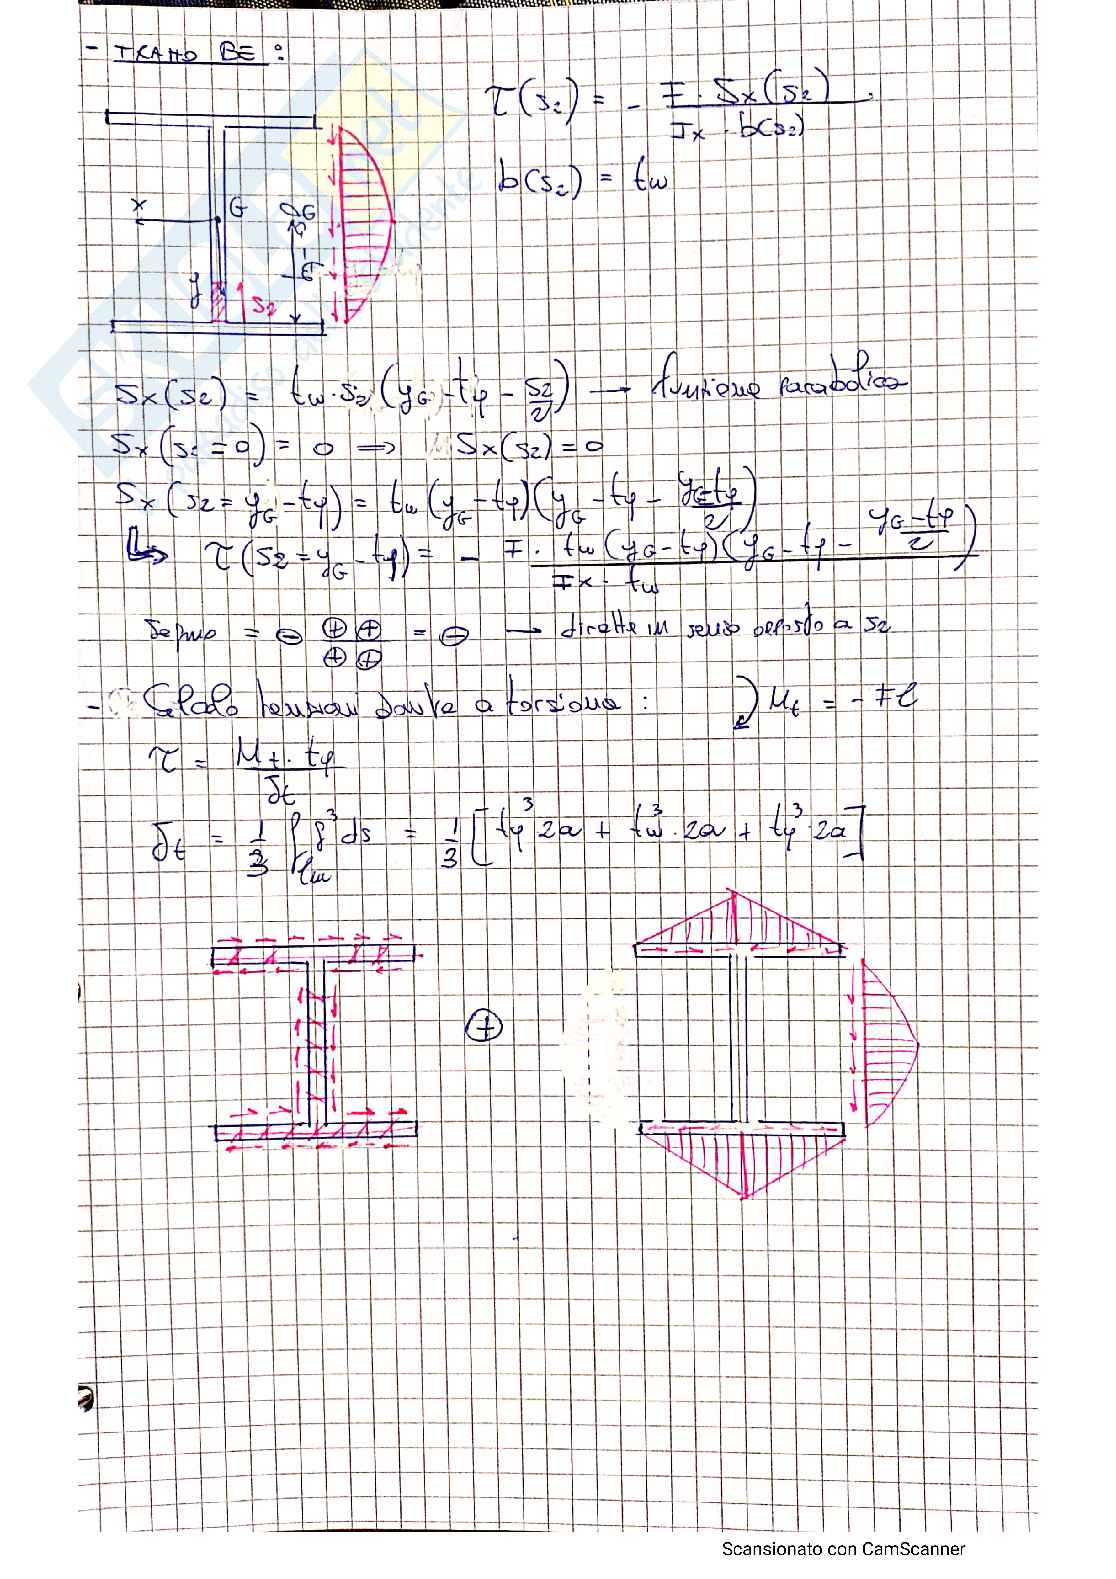 - TRATTO BE:
τ(s₂) = - F · Sx(s₂) / Ix · b(s₂)
b(s₂) = tw
x G yG
y s₂
Sx(s₂) = tw · s₂ (yG - tf - s₂/2) → funzione parabolica
Sx(s₂=0) = 0 ⇒ Sx(s₂) = 0
Sx(s₂ = yG - tf) = tw (yG - tf)(yG - tf - yG-tf/2)
↳ τ(s₂ = yG - tf) = - F · tw (yG - tf)(yG - tf - yG-tf/2) / Ix · tw
Segno = ⊖ ⊕⊕/⊕⊕ = ⊖ → dirette in senso opposto a s₂
- Calcolo tensioni dovute a torsione : Mt = - Fl
τ = Mt · tf / Jt
Jt = 1/3 ∫lm δ³ ds = 1/3 [tf³ 2a + tw³ · 2a + tf³ · 2a]
⊕
Scansionato con CamScanner